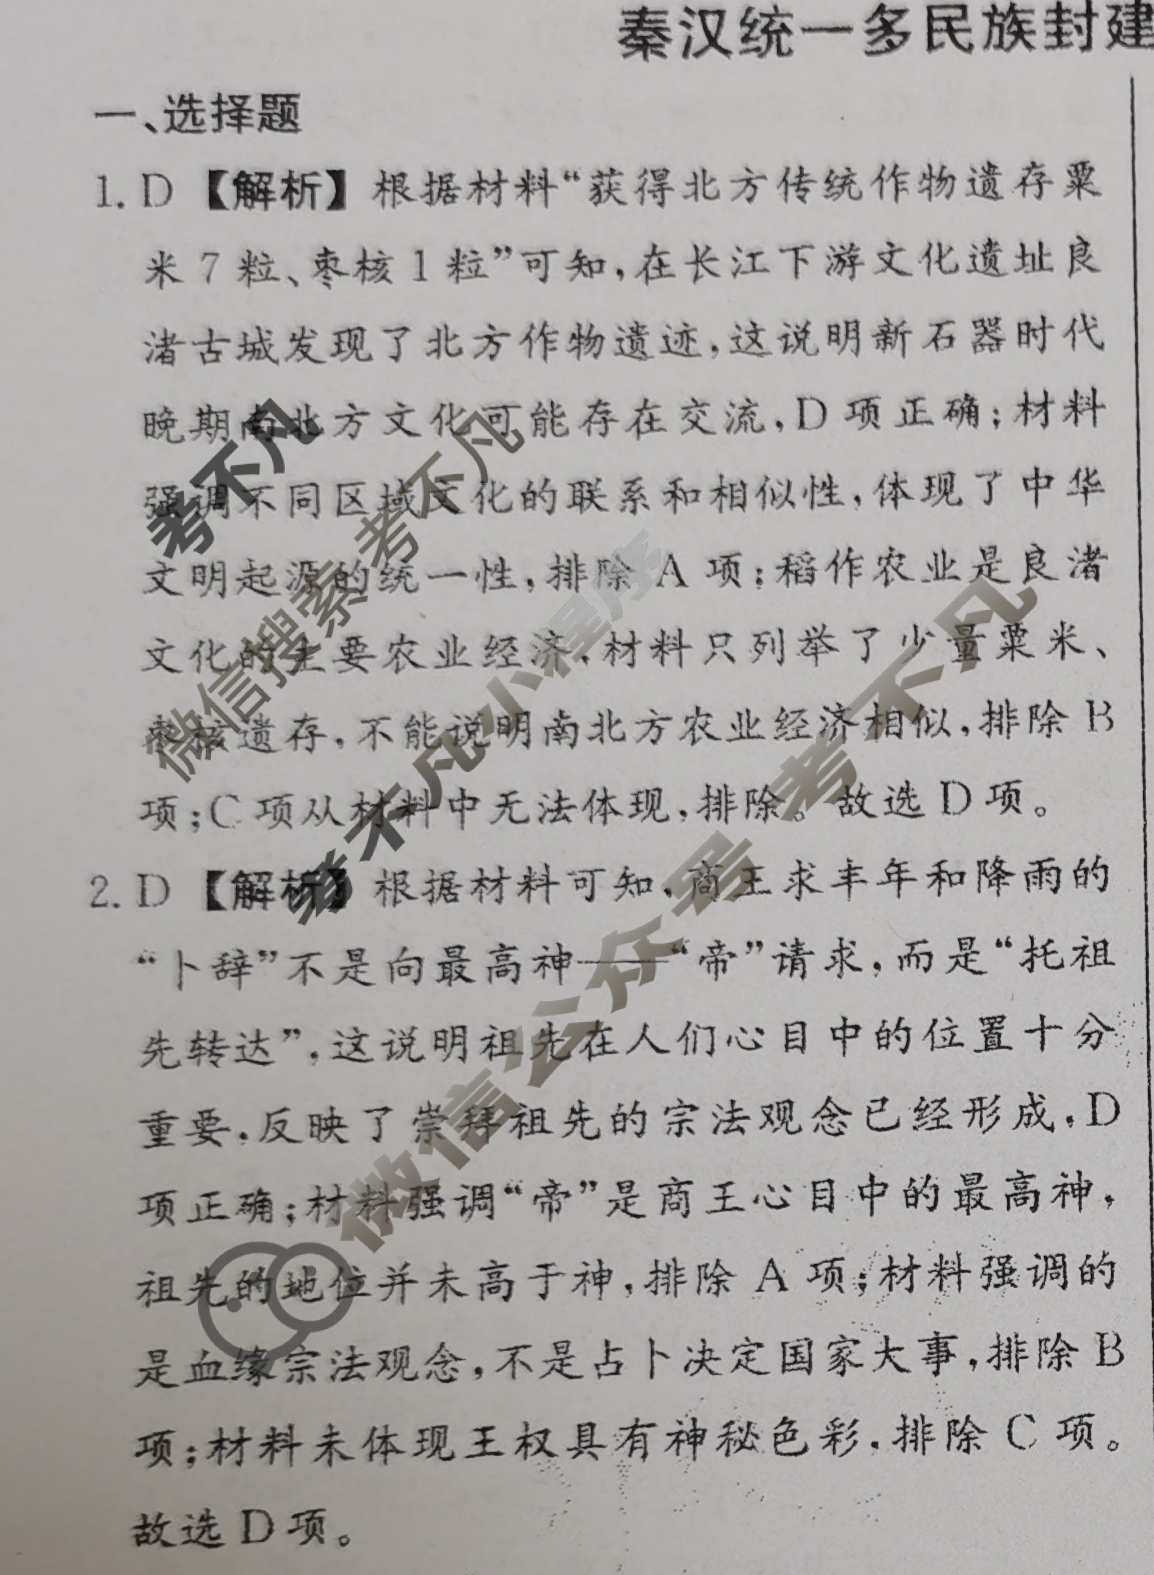 秦汉统一多民族封建
一、选择题
1. D【解析】根据材料“获得北方传统作物遗存粟
米7粒、枣核1粒”可知,在长江下游文化遗址良
渚古城发现了北方作物遗迹,这说明新石器时代
晚期南北方文化可能存在交流,D项正确;材料
强调不同区域文化的联系和相似性,体现了中华
文明起源的统一性,排除A项;稻作农业是良渚
文化的主要农业经济,材料只列举了少量粟米、
枣核遗存,不能说明南北方农业经济相似,排除B
项;C项从材料中无法体现,排除。故选D项。
2. D【解析】根据材料可知,商王求丰年和降雨的
“卜辞”不是向最高神——“帝”请求,而是“托祖
先转达”,这说明祖先在人们心目中的位置十分
重要,反映了崇拜祖先的宗法观念已经形成,D
项正确;材料强调“帝”是商王心目中的最高神,
祖先的地位并未高于神,排除A项;材料强调的
是血缘宗法观念,不是占卜决定国家大事,排除B
项;材料未体现王权具有神秘色彩,排除C项。
故选D项。
考不凡
微信搜索 考不凡
考不凡小程序
微信公众号 考不凡